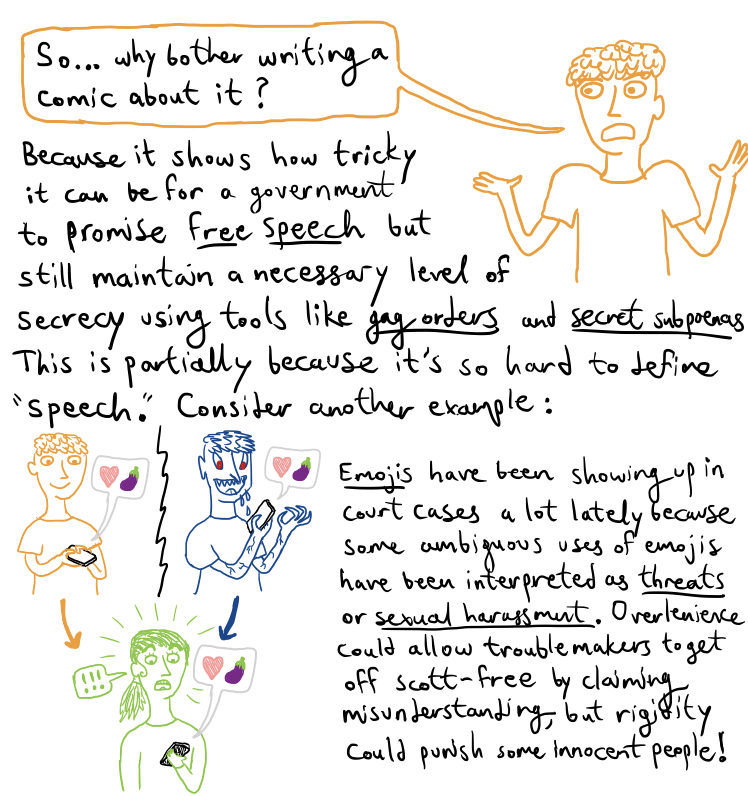 So... why bother writing a
comic about it?
Because it shows how tricky
it can be for a government
to promise free speech but
still maintain a necessary level of
secrecy using tools like gag orders and secret subpoenas
This is partially because it's so hard to define
"speech." Consider another example:
Emojis have been showing up in
court cases a lot lately because
some ambiguous uses of emojis
have been interpreted as threats
or sexual harassment. Overlenience
could allow troublemakers to get
off scott-free by claiming
misunderstanding, but rigidity
could punish some innocent people!
!!!